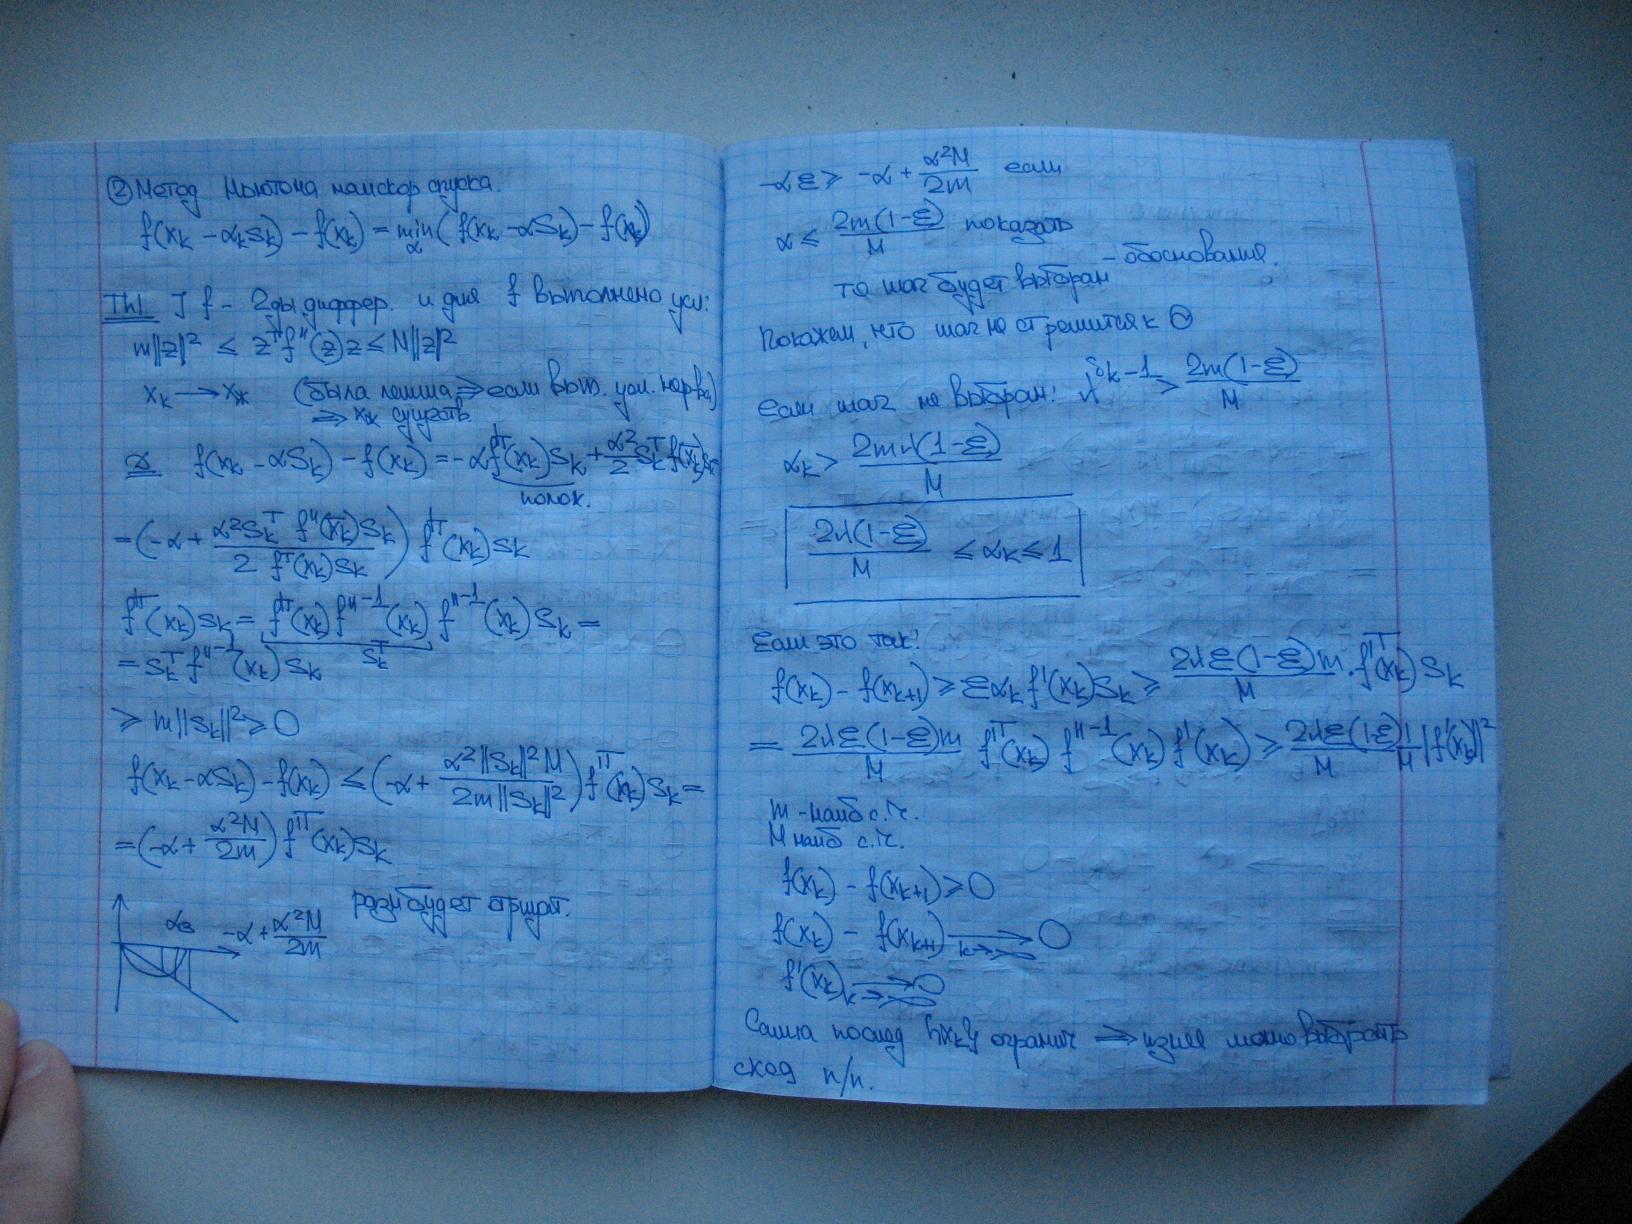 ② Метод Ньютона наискор спуска.
f(xₖ - αₖSₖ) - f(xₖ) = min_α (f(xₖ - αSₖ) - f(xₖ))
Th1 ] f - 2ды диффер. и для f выполнено усл:
m||z||² ≤ zᵀf''(z)z ≤ M||z||²
xₖ → x* (была лемма ⇒ если вып. усл. нер-ва)
⇒ x* существ.
f(xₖ - αSₖ) - f(xₖ) = -αf'ᵀ(xₖ)Sₖ + α²/2 Sₖᵀ f(x̄ₖ)Sₖ
полож.
= (-α + α²Sₖᵀ f''(x̄ₖ)Sₖ / 2 f'ᵀ(xₖ)Sₖ) f'ᵀ(xₖ)Sₖ
f'ᵀ(xₖ)Sₖ = f'ᵀ(xₖ) f''⁻¹(xₖ) f''⁻¹(xₖ) Sₖ =
Sₖᵀ
= Sₖᵀ f''⁻¹(xₖ) Sₖ
≥ m||Sₖ||² ≥ 0
f(xₖ - αSₖ) - f(xₖ) ≤ (-α + α²||Sₖ||²M / 2m||Sₖ||²) f'ᵀ(xₖ)Sₖ =
= (-α + α²M/2m) f'ᵀ(xₖ)Sₖ
-α + α²M/2m
будет отрицат.
-αε ≥ -α + α²M/2m если
α ≤ 2m(1-ε)/M показать
- обоснования.
то шаг будет выбран
Покажем, что шаг не стремится к 0
Если шаг не выбран: λ^(iₖ-1) > 2m(1-ε)/M
αₖ > 2mλ(1-ε)/M
2λ(1-ε)/M ≤ αₖ ≤ 1
Если это так:
f(xₖ) - f(xₖ₊₁) ≥ εαₖ f'(xₖ)Sₖ ≥ 2λε(1-ε)m/M · f'ᵀ(xₖ) Sₖ
= 2λε(1-ε)m/M f'ᵀ(xₖ) f''⁻¹(xₖ) f'(xₖ) ≥ 2λε(1-ε)/M 1/M |f'(xₖ)|²
m - наиб с.ч.
M наиб с.ч.
f(xₖ) - f(xₖ₊₁) ≥ 0
f(xₖ) - f(xₖ₊₁) → 0 k→∞
f'(xₖ) → 0 k→∞
Сама послед {xₖ} огранич ⇒ из нее можно выбрать
сход п/п.